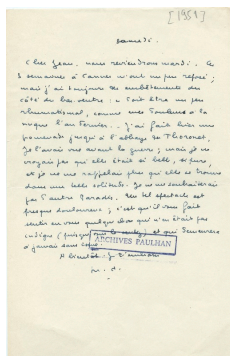 [1951]
samedi.
Cher Jean, nous reviendrons mardi.
3 semaines à Cannes m'ont un peu reposé ;
mais j'ai toujours des embêtements du
côté du bas ventre : ce doit être un peu
rhumatismal, comme mes douleurs à la
nuque l'an dernier. J'ai fait hier une
promenade jusqu'à l'abbaye du Thoronet.
Je l'avais vue avant la guerre ; mais je ne
croyais pas qu'elle était si belle, si pure,
et je ne me rappelais plus qu'elle se trouve
dans une telle solitude. Je ne souhaiterais
pas d'autre Paradis. Un tel spectacle est
presque douloureux ; c'est qu'il vous fait
sentir en vous quelque chose qui n'en était pas
indigne (puisque on le sent) et qui demeurera
à jamais sans
ARCHIVES PAULHAN
A bientôt. Je t'embrasse